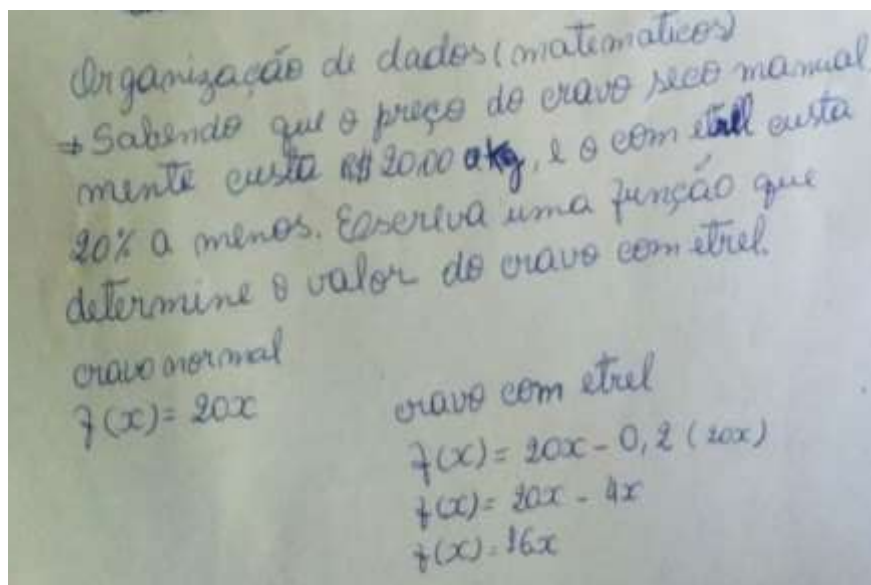 Organização de dados (matematicos)
⇒ Sabendo que o preço do cravo seco manual
mente custa R$ 20,00 o kg, e o com etrel custa
20% a menos. Escreva uma função que
determine o valor do cravo com etrel.
cravo normal
f(x) = 20x
cravo com etrel
f(x) = 20x - 0,2 (20x)
f(x) = 20x - 4x
f(x) = 16x